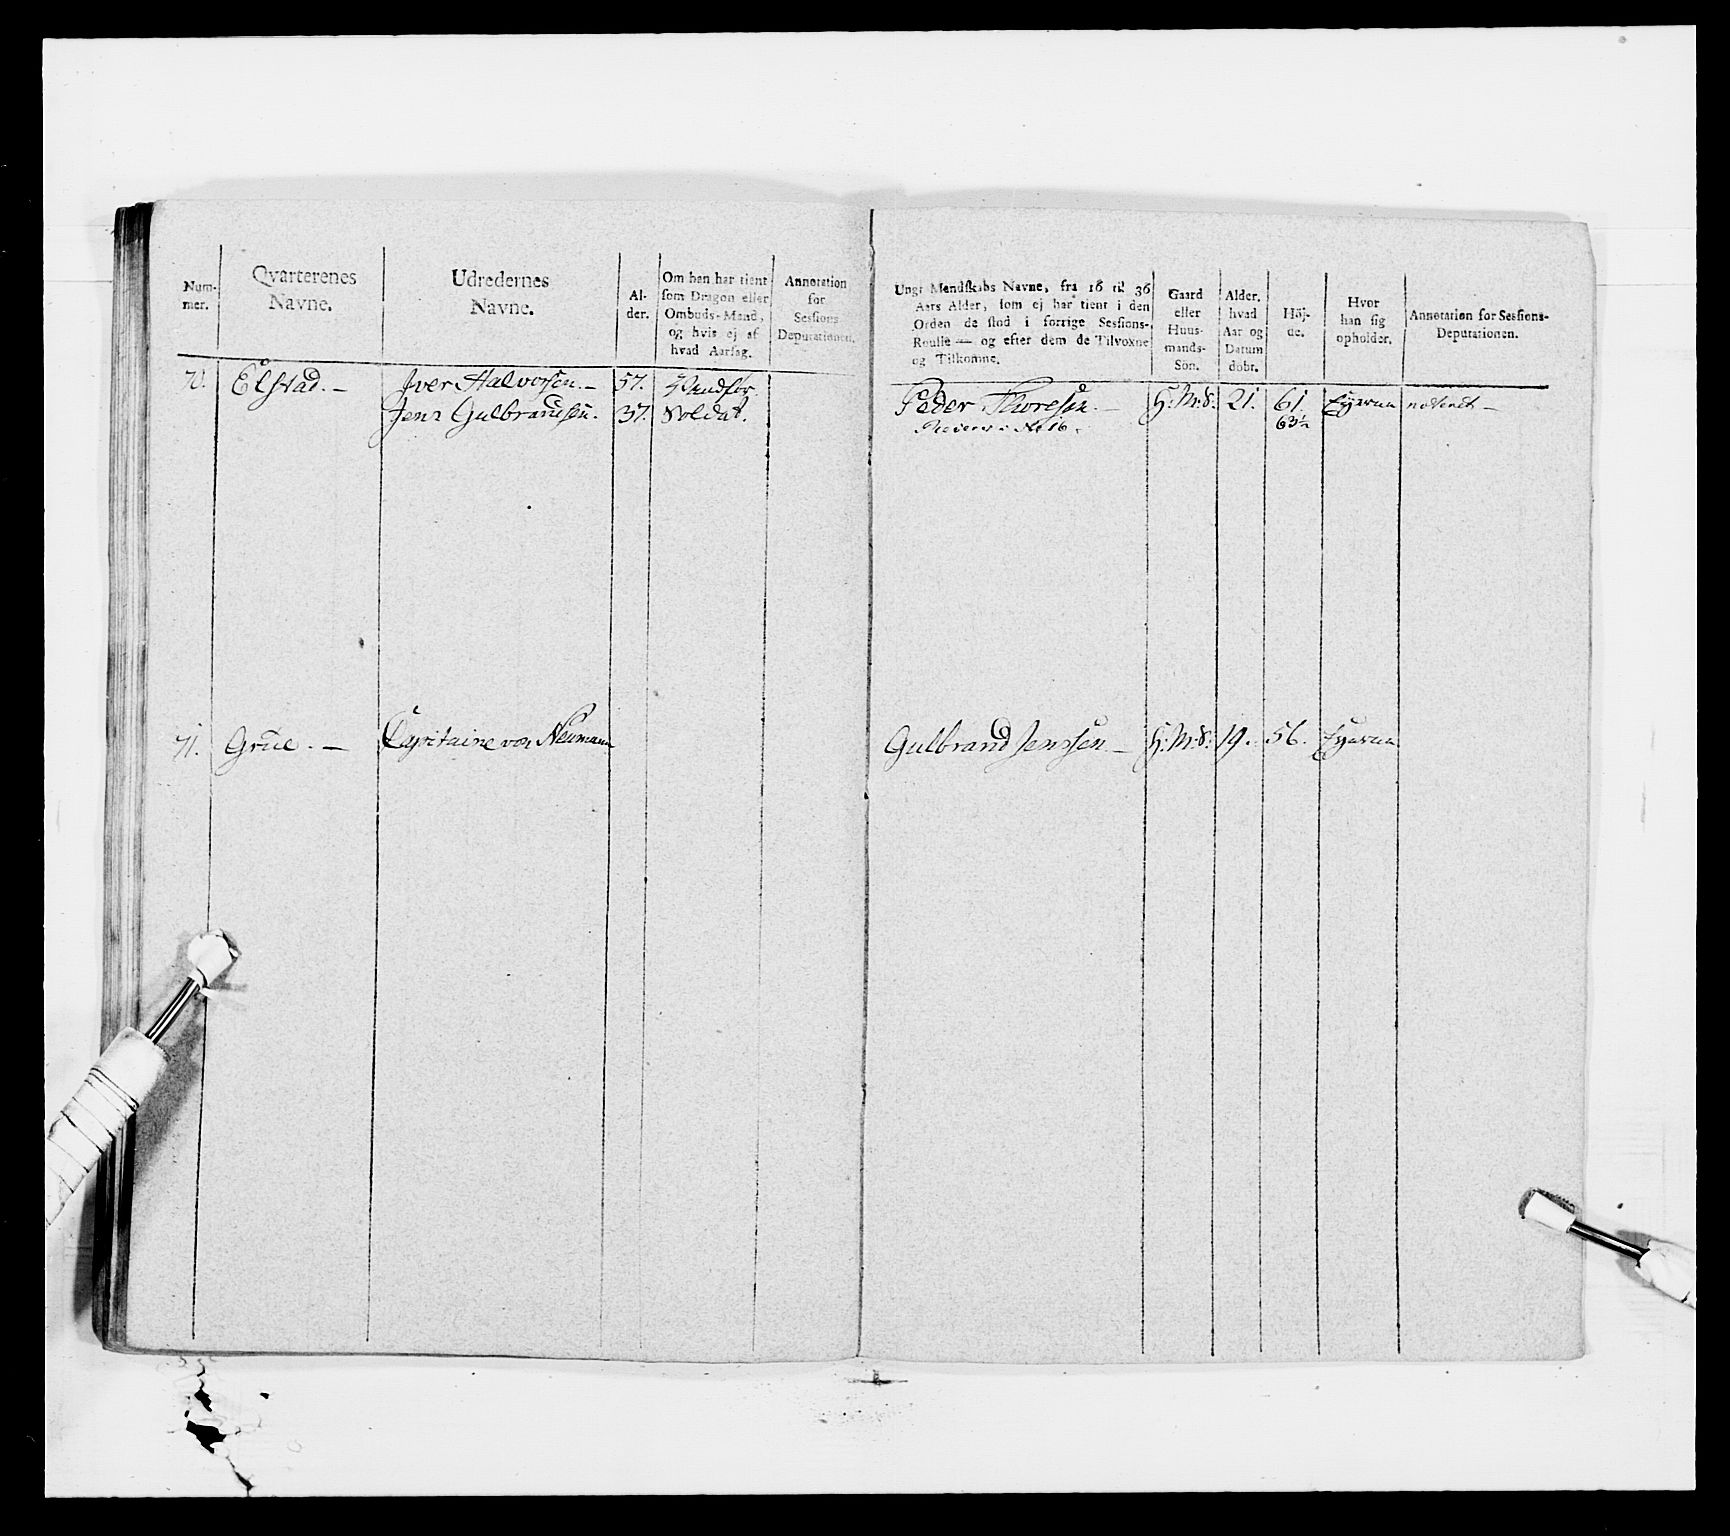 Num-
mer.
Qvarterenes
Navne.
Udredernes
Navne.
Al-
der.
Om han har tient
som Dragon eller
Ombuds-Mand,
og hvis ej af
hvad Aarsag.
Annotation
for
Sessions
Deputationen.
70. Elstad. — Iver Halvorsen. — 57.
Jens Gulbrandsen. 37. Soldat.
71. Grue. — Capitaine von Neumann
Ungt Mendskabs Navne, fra 16 til 36
Aars Alder, som ej har tient i den
Orden de stod i forrige Sessions-
Roulle — og efter dem de Tilvoxne
og Tilkomne.
Gaard
eller
Huus-
mands-
Søn.
Alder.
hvad
Aar og
Datum
døbt.
Høj-
de.
Hvor
han sig
opholder.
Annotation for Sessions-
Deputationen.
Peder Thoresen. — H: M: S: 21. 61. noteret —
No 16. 63½
Gulbrand Jenssen — H: M: S: 19. 56.